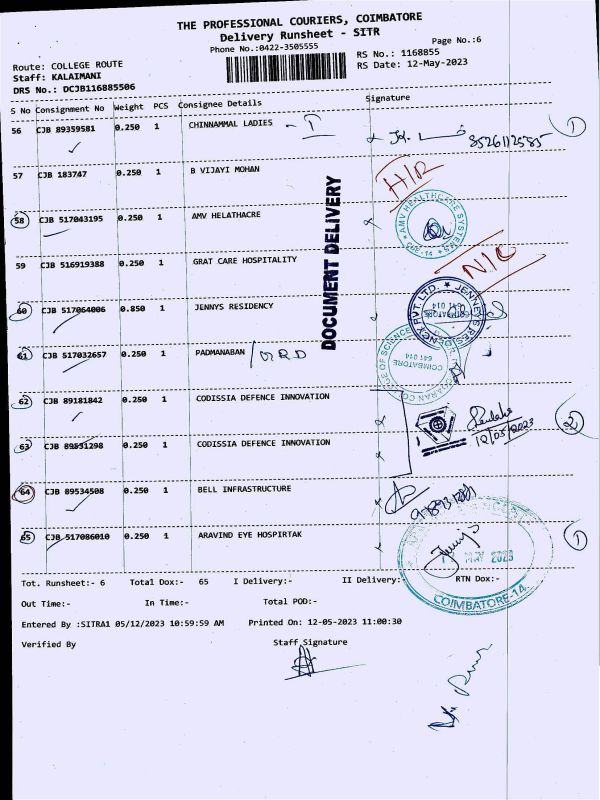 THE PROFESSIONAL COURIERS, COIMBATORE
Delivery Runsheet - SITR
Phone No.:0422-3505555
Page No.:6
Route: COLLEGE ROUTE
RS No.: 1168855
Staff: KALAIMANI
RS Date: 12-May-2023
DRS No.: DCJB116885506
S No Consignment No Weight PCS Consignee Details Signature
56 CJB 89359581 0.250 1 CHINNAMMAL LADIES - T 8526112585 1
57 CJB 183747 0.250 1 B VIJAYI MOHAN H/R
58 CJB 517043195 0.250 1 AMV HELATHACRE
AMV HEALTHCARE SYSTEMS
59 CJB 516919388 0.250 1 GRAT CARE HOSPITALITY N/C
DOCUMENT DELIVERY
60 CJB 517064006 0.850 1 JENNYS RESIDENCY
JENNEYS RESIDENCY PVT. LTD.
COIMBATORE 641 014
61 CJB 517032657 0.250 1 PADMANABAN /GRD
COIMBATORE 641 014
62 CJB 89181842 0.250 1 CODISSIA DEFENCE INNOVATION
12/05/2023 2
63 CJB 89531298 0.250 1 CODISSIA DEFENCE INNOVATION
64 CJB 89534508 0.250 1 BELL INFRASTRUCTURE
65 CJB 517086010 0.250 1 ARAVIND EYE HOSPIRTAK 1
MAY 2023
COIMBATORE-14
Tot. Runsheet:- 6 Total Dox:- 65 I Delivery:- II Delivery:- RTN Dox:-
Out Time:- In Time:- Total POD:-
Entered By :SITRA1 05/12/2023 10:59:59 AM Printed On: 12-05-2023 11:00:30
Verified By Staff Signature